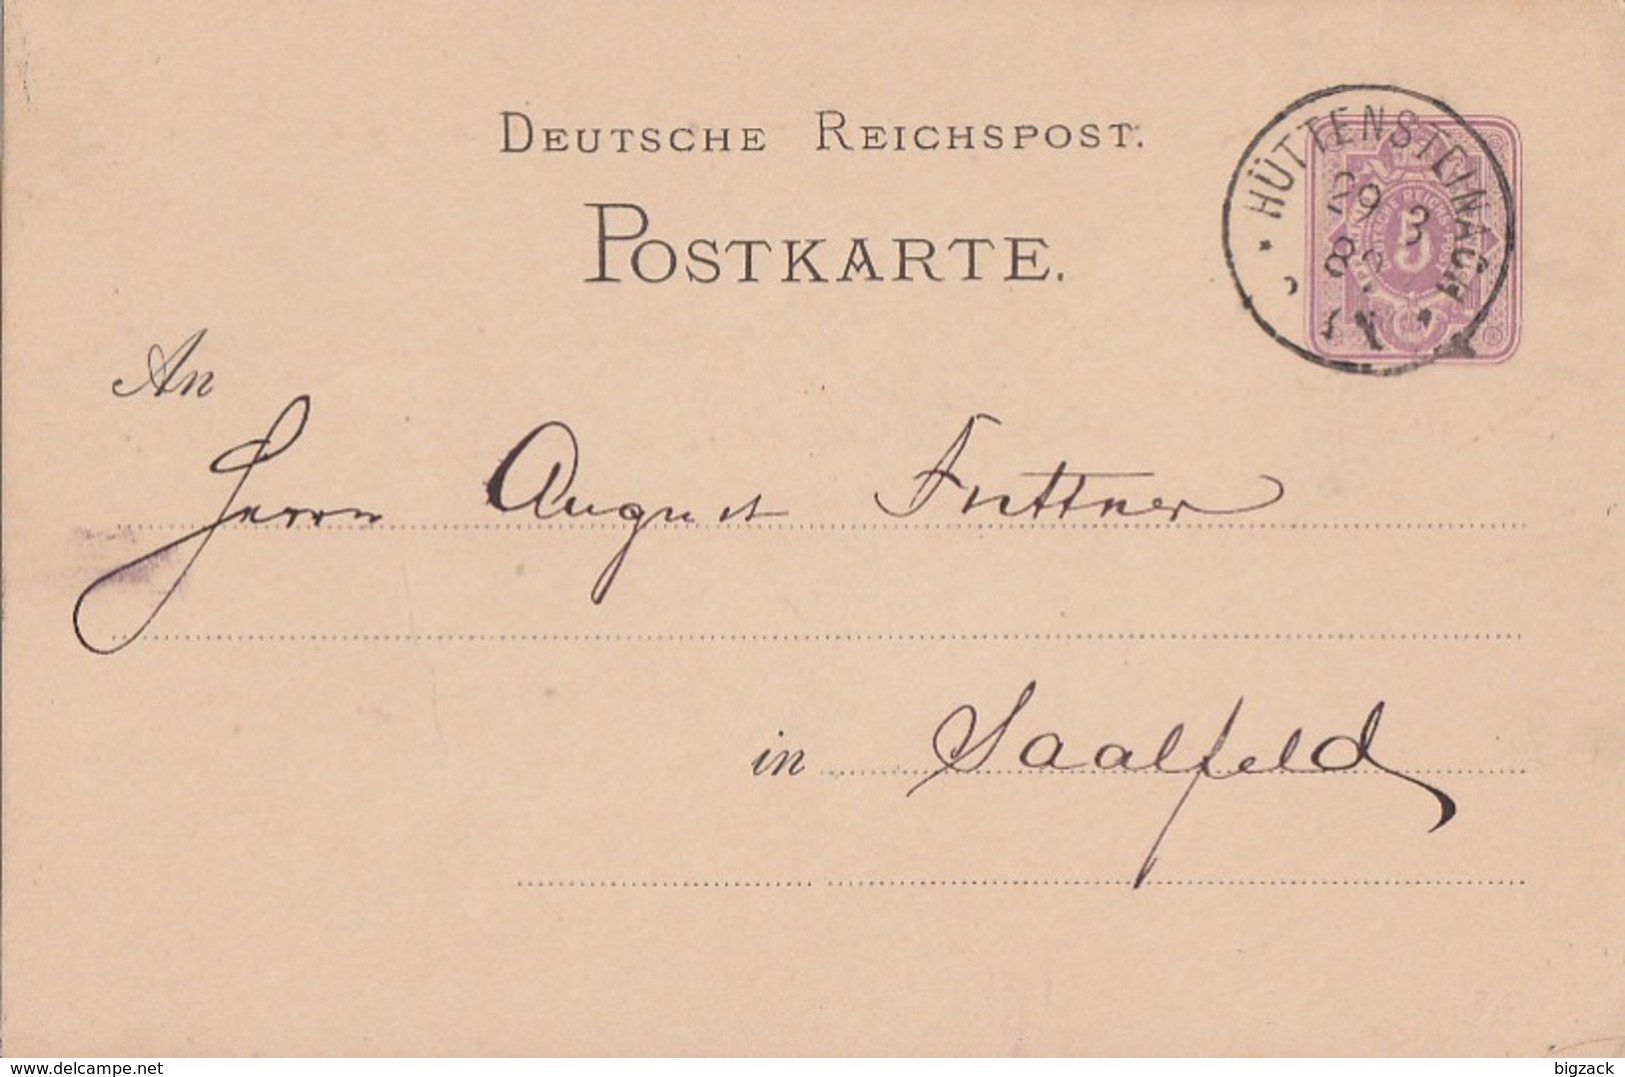 DEUTSCHE REICHSPOST.
POSTKARTE.
HÜTTENSTEINACH
29 3
8
5
An
Herrn August Futtner
in Saalfeld
delcampe.net
bigzack